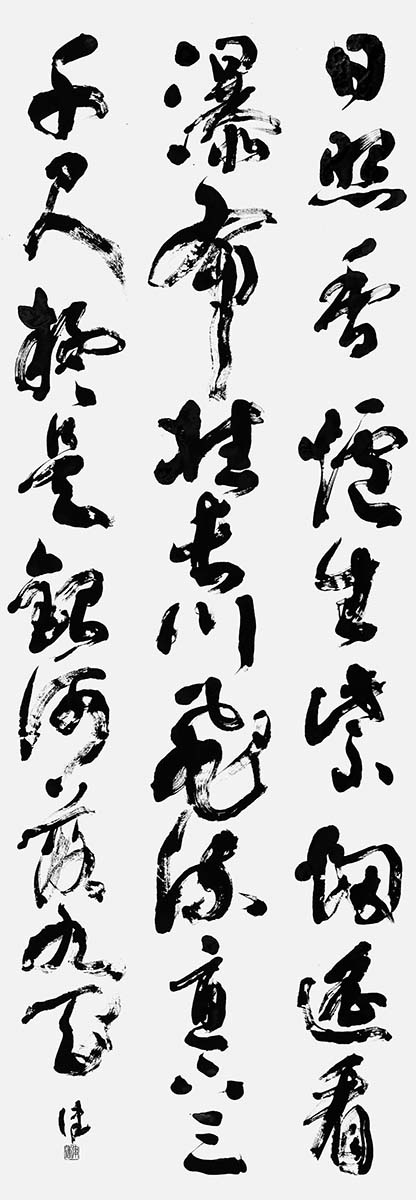 日照香爐生紫烟遙看
瀑布挂長川飛流直下三
千尺疑是銀河落九天